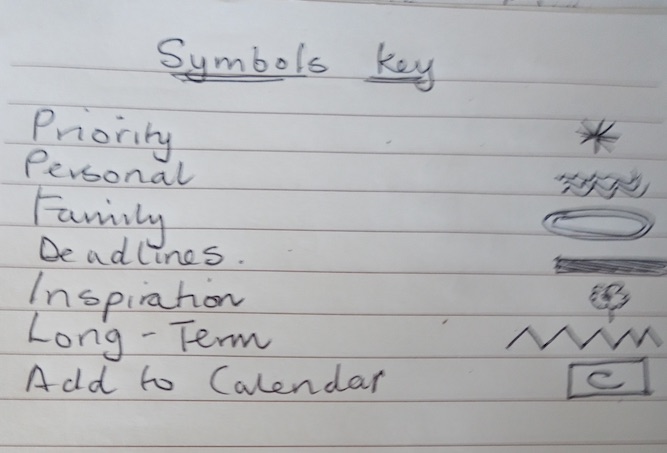 Symbols Key
Priority
Personal
Family
Deadlines.
Inspiration
Long - Term
Add to Calendar C